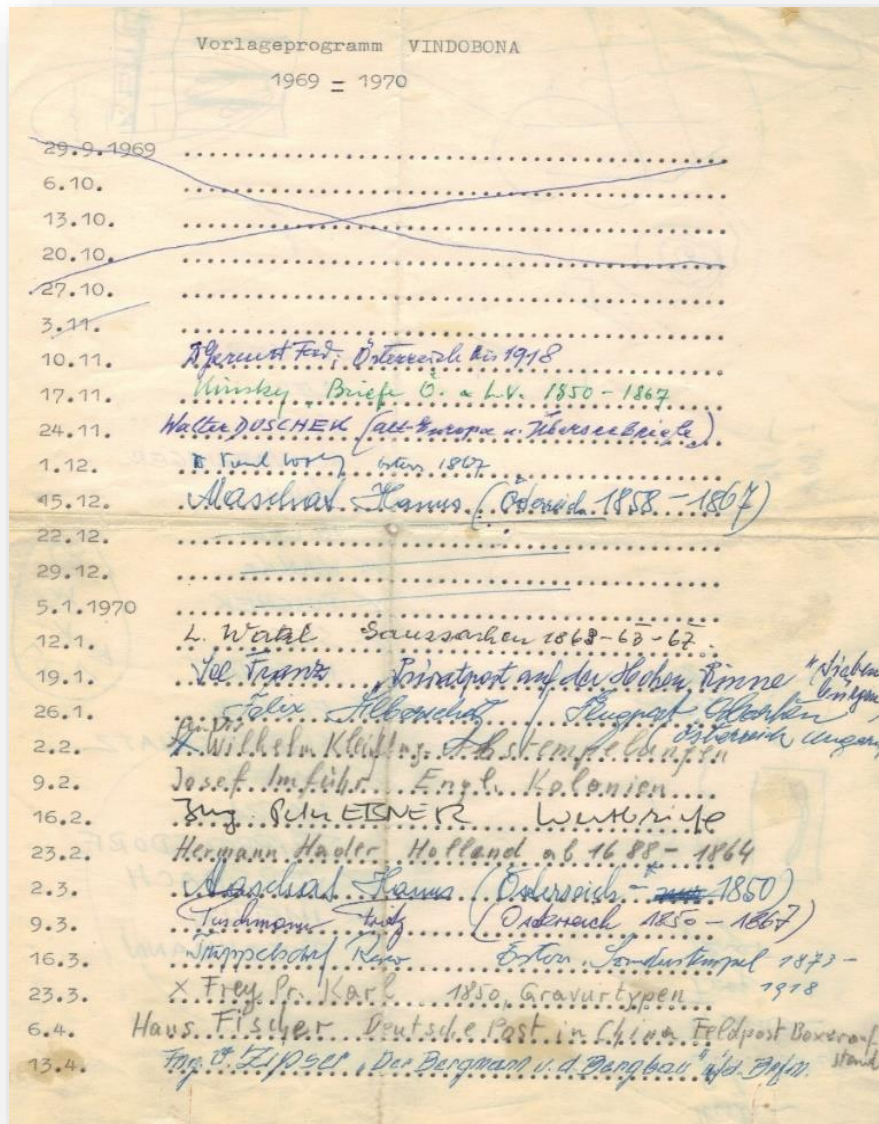 Vorlageprogramm VINDOBONA
1969 = 1970
29.9.1969
6.10.
13.10.
20.10.
27.10.
3.11.
10.11. Österreich bis 1918
17.11. Kinsky Briefe Ö. L.V. 1850 - 1867
24.11. Walter DUSCHEK (alt-Europa u. Überseebriefe)
1.12. 1867
15.12. Maschat Hanus (Österreich 1858 - 1867)
22.12.
29.12.
5.1.1970
12.1. L. Watzl 1863-63-67
19.1. Franz "Privatpost auf der Hohen Rinne" (Sieben
bürgen)
26.1. Felix Flugpost
Österreich Ungarn
2.2. X Wilhelm Abstempelungen
9.2. Josef Imführ Engl. Kolonien
16.2. Ing. EBNER
23.2. Hermann Hader Holland ab 1688 - 1864
2.3. Maschat Hanus (Österreich - 1850)
9.3. Tuschmann Fritz (Österreich 1850 - 1867)
16.3. Sonderstempel 1873 -
1918
23.3. X Frey, Pr. Karl 1850, Gravurtypen
6.4. Hans Fischer Deutsche Post in China Feldpost Boxerauf
stand
13.4. Ing. ZIPSER "Der Bergmann u. d. Bergbau"